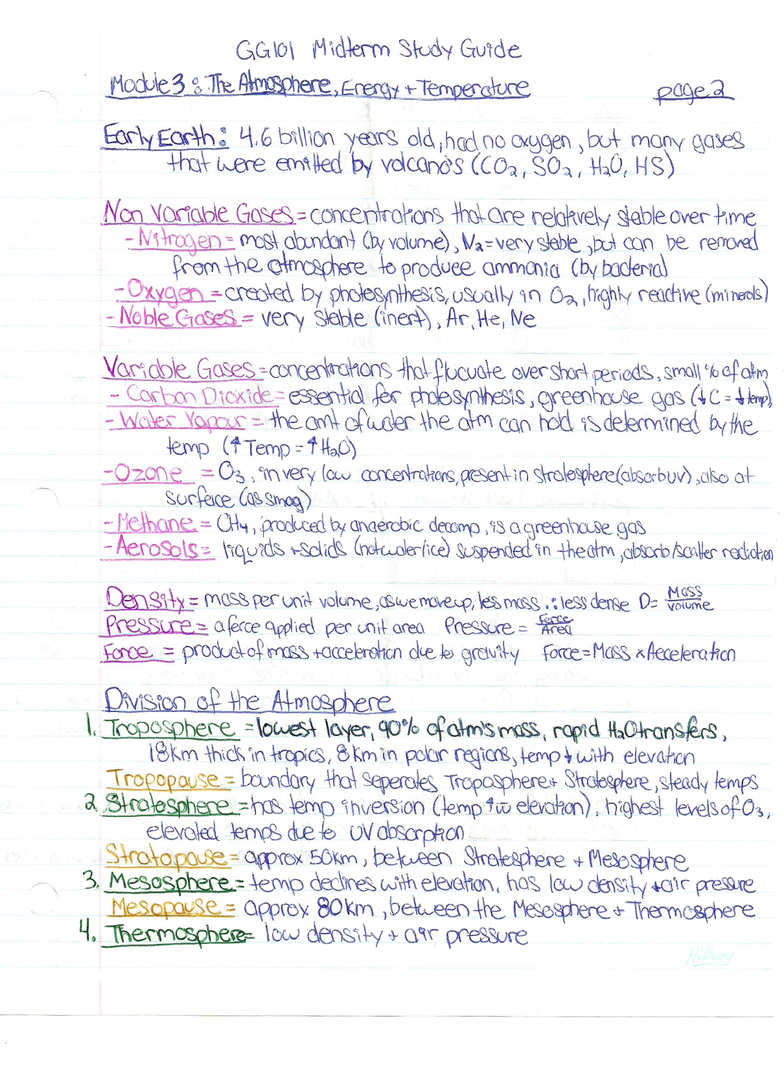 GG101 Midterm Study Guide
Module 3: The Atmosphere, Energy + Temperature page 2
Early Earth: 4.6 billion years old, had no oxygen, but many gases
that were emitted by volcano's (CO₂, SO₂, H₂O, HS)
Non Variable Gases = concentrations that are relatively stable over time
- Nitrogen = most abundant (by volume), N₂ = very stable, but can be removed
from the atmosphere to produce ammonia (by bacteria)
- Oxygen = created by photosynthesis, usually in O₂, highly reactive (minerals)
- Noble Gases = very stable (inert), Ar, He, Ne
Variable Gases = concentrations that flucuate over short periods, small % of atm
- Carbon Dioxide = essential for photosynthesis, greenhouse gas (↓C = ↓temp)
- Water Vapour = the amt of water the atm can hold is determined by the
temp (↑Temp = ↑H₂O)
- Ozone = O₃, in very low concentrations, present in stratosphere (absorb uv), also at
surface (as smog)
- Methane = CH₄, produced by anaerobic decomp, is a greenhouse gas
- Aerosols = liquids + solids (not water/ice) suspended in the atm, absorb/scatter radiation
Density = mass per unit volume, as we move up, less mass ∴ less dense D = Mass/Volume
Pressure = a force applied per unit area Pressure = Force/Area
Force = product of mass + acceleration due to gravity Force = Mass x Acceleration
Division of the Atmosphere
1. Troposphere = lowest layer, 90% of atm's mass, rapid H₂O transfers,
18km thick in tropics, 8km in polar regions, temp ↓ with elevation
Tropopause = boundary that seperates Troposphere + Stratosphere, steady temps
2. Stratosphere = has temp inversion (temp ↑ w elevation), highest levels of O₃,
elevated temps due to UV absorption
Stratopause = approx 50km, between Stratosphere + Mesosphere
3. Mesosphere = temp declines with elevation, has low density + air pressure
Mesopause = approx 80km, between the Mesosphere + Thermosphere
4. Thermosphere = low density + air pressure